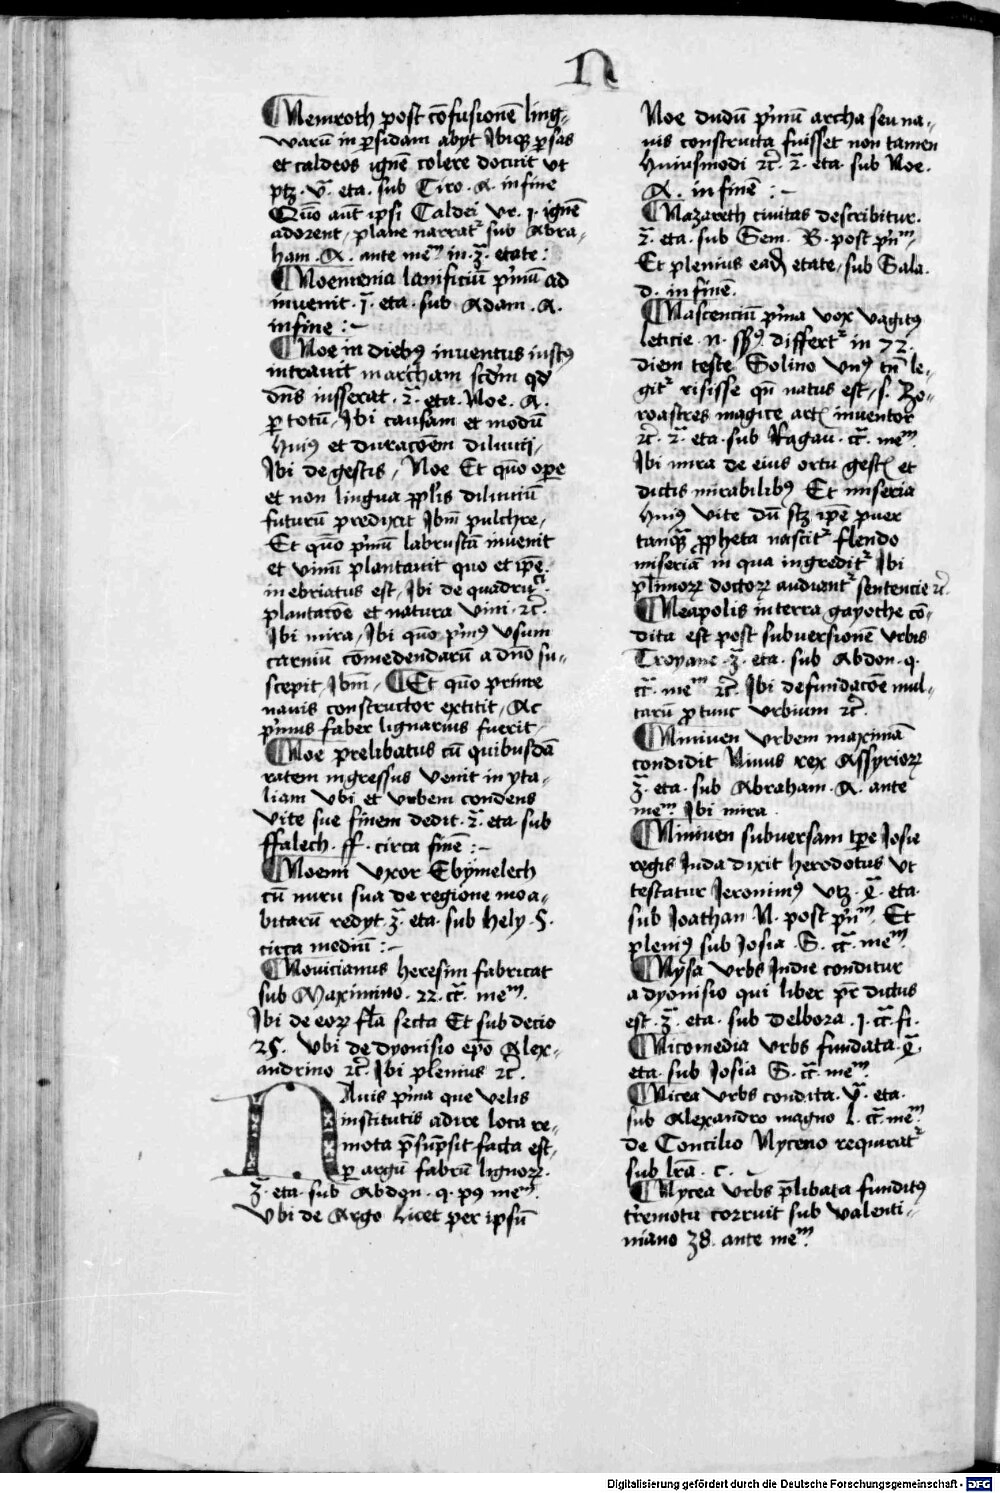 N
¶Nemroth post cōfusionē ling-
warū in ꝑsidam abyt Ibiqꝫ ꝑsas
et caldeos ignē colere docuit vt
ptꝫ · vᵃ. eta. sub Ciro . A. in fine
Quō aūt ipsi Caldei vr. 1. ignē
adorent, plane narratʳ sub Abra-
ham . A. ante meᵐ in . 3ᵃ. etate :
¶Noemenia lanificiū pͥmū ad
invenit . 1ᵃ. eta. sub Adam . A.
in fine : ~
¶Noe in diebꝰ inventus iustꝰ
intravit marcham scdm qd
dn̄s iusserat . 2ᵃ. eta. Noe . A.
ꝑ totū, Ibi causam et modū
huiꝰ et duracōem diluvij,
Ibi de gestis, Noe Et quō oꝑe
et non lingua ppl̄is diluviū
futurū predixit Ibm̄ pulchre,
Et quō pͥmū labruscā invenit
et vinū plantavit quo et ip̄e
inebriatus est, Ibi de quadruᶜⁱ
plantacōe et natura vini . ꝛc̄.
Ibi mira, Ibi quō pͥmꝰ vsum
carniū cōmedendarū a dn̄o su-
scepit, Ibm̄, ¶Et quō prime
navis constructor extitit, Ac
pͥmus faber lignarius fuerit
¶Noe prelibatus cū quibusdā
ratem ingressus venit in yta-
liam vbi et vrbem condens
vite sue finem dedit . 2ᵃ. eta. sub
ffalech . ff . circa finē : ~
¶Noemi vxor Ebymelech
cū nuru sua de regione moa-
bitarū redyt . 3ᵃ. eta. sub hely . S.
circa mediū : ~
¶Novicianus heresim fabricat
sub Maximino . 22. cᵃ. meᵐ.
Ibi de eoꝝ fl̄a secta Et sub decio
25. vbi de dyonisio ep̄o Alex-
andrino ꝛc̄. Ibi plenius ꝛc̄.
Navis pͥma que velis
institutis adire loca re-
mota p̄sūpsit facta est,
ꝑ argū fabrū lignoꝝ.
3ᵃ. eta. sub Abdon . q. pꝰ meᵐ.
Vbi de Argo Licet per ipsū
Noe dudū pͥmū archa seu na-
vis constructa fuisset non tamen
huiusmodi ꝛc̄. 2ᵃ. eta. sub Noe.
A. in finē : ~
¶Nazareth civitas describitur.
2ᵃ. eta. sub Sem . B. post pͥnᵐ,
Et plenius eadꝫ etate, sub Sala.
d. in finē.
¶Nascenciū pͥma vox vagitꝰ
leticie . n. differtʳ in 72.
diem teste Solino vnꝰ tn̄ le-
gitʳ risisse qn̄ natus est, s. Zo-
roastres magice artꝭ inventor
ꝛc̄. 2ᵃ. eta. sub Ragau . cᵃ. meᵐ.
Ibi mira de eius ortu gestꝭ et
dictis mirabilibꝰ Et miseria
huiꝰ vite dū sꝫ ip̄e puer
tanqᵃ ꝓpheta nascitʳ flendo
miseriā in qua ingreditʳ Ibi
pl̄imoꝝ doctoꝝ audientʳ sentencie ꝛc̄.
¶Neapolis in terra gayoche cō-
dita est post subversionē vrbis
Troyane . 3ᵃ. eta. sub Abdon . q.
cᵃ. meᵐ ꝛc̄. Ibi de fundacōe mul-
tarū ꝓ tunc vrbium ꝛc̄.
¶Niniven vrbem maximā
condidit Ninus rex Assyrioꝝ
3ᵃ. eta. sub Abraham . A. ante
meᵐ Ibi mira
¶Niniven subversam tꝑe Josie
regis Juda dixit herodotus vt
testatur Jeronimꝰ vtꝫ . 4ᵃ. eta.
sub Joathan N. post pͥnᵐ. Et
pleniꝰ sub Josia . S. cᵃ. meᵐ.
¶Nysa vrbs Indie conditur
a dyonisio qui liber pr̄ dictus
est . 3ᵃ. eta. sub Delbora . 1. cᵃ. fi.
¶Nicomedia vrbs fundata . 4ᵃ.
eta. sub Josia S. cᵃ. meᵐ.
¶Nicea vrbs condita . vᵃ. eta.
sub Alexandro magno l. cᵃ. meᵐ.
de Concilio Nyceno requiratʳ
sub lr̄a . c. ~
¶Nycea vrbs p̄libata funditꝰ
tͤremotu corruit sub valenti-
niano 38. ante meᵐ
Digitalisierung gefördert durch die Deutsche Forschungsgemeinschaft - DFG